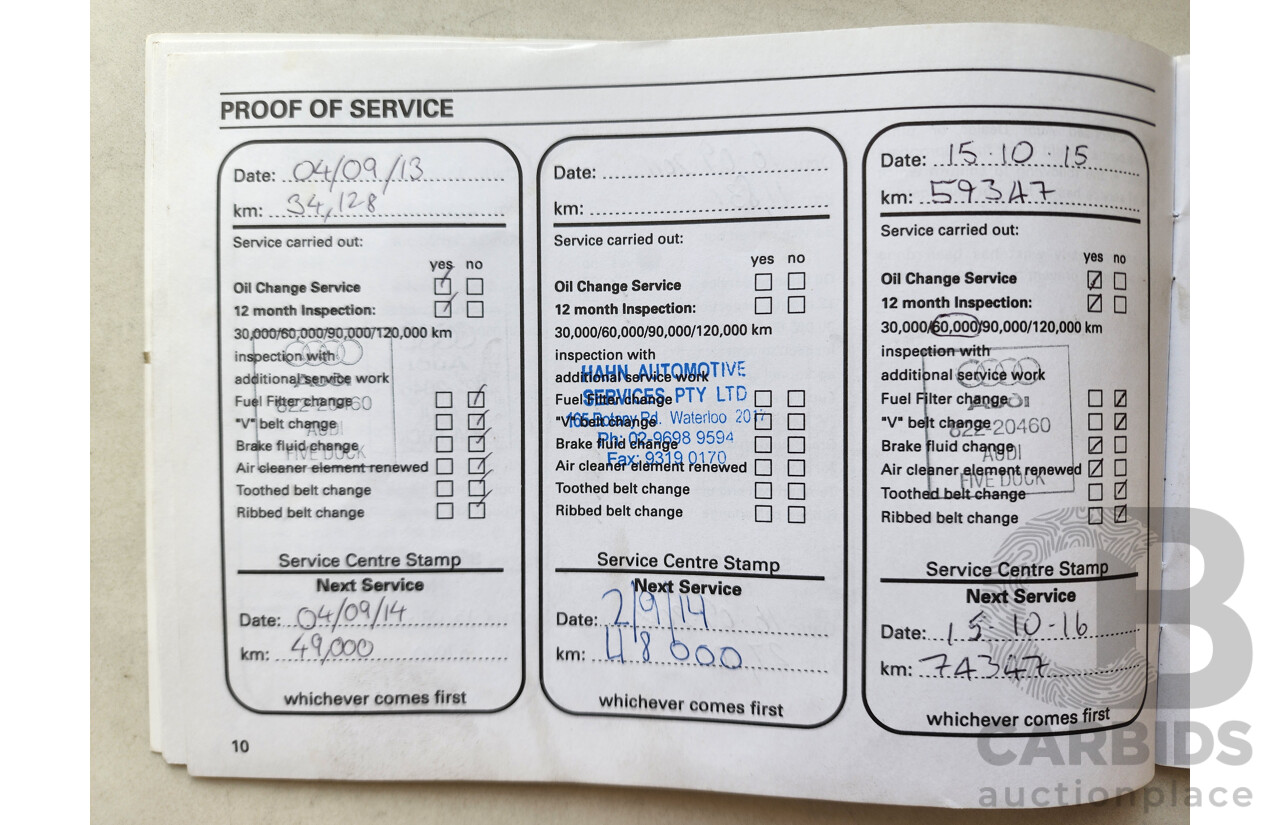 PROOF OF SERVICE
Date: 04/09/13
km: 34,128
Service carried out:
yes no
Oil Change Service
12 month Inspection:
30,000/60,000/90,000/120,000 km
inspection with
additional service work
Fuel Filter change
822-20460
"V" belt change
AUDI
Brake fluid change
FIVE DOCK
Air cleaner element renewed
Toothed belt change
Ribbed belt change
Service Centre Stamp
Next Service
Date: 04/09/14
km: 49,000
whichever comes first
Date:
km:
Service carried out:
yes no
Oil Change Service
12 month Inspection:
30,000/60,000/90,000/120,000 km
inspection with
HAHN AUTOMOTIVE
additional service work
SERVICES PTY LTD
Fuel Filter change
165 Botany Rd. Waterloo 2017
"V" belt change
Ph: 02-9698 9594
Brake fluid change
Fax: 9319 0170
Air cleaner element renewed
Toothed belt change
Ribbed belt change
Service Centre Stamp
Next Service
Date: 2/9/14
km: 48000
whichever comes first
Date: 15.10.15
km: 59347
Service carried out:
yes no
Oil Change Service
12 month Inspection:
30,000/60,000/90,000/120,000 km
inspection with
additional service work
Fuel Filter change
AUDI
"V" belt change
822-20460
Brake fluid change
AUDI
Air cleaner element renewed
FIVE DOCK
Toothed belt change
Ribbed belt change
Service Centre Stamp
Next Service
Date: 15-10-16
km: 74347
whichever comes first
10
CARBIDS
auctionplace